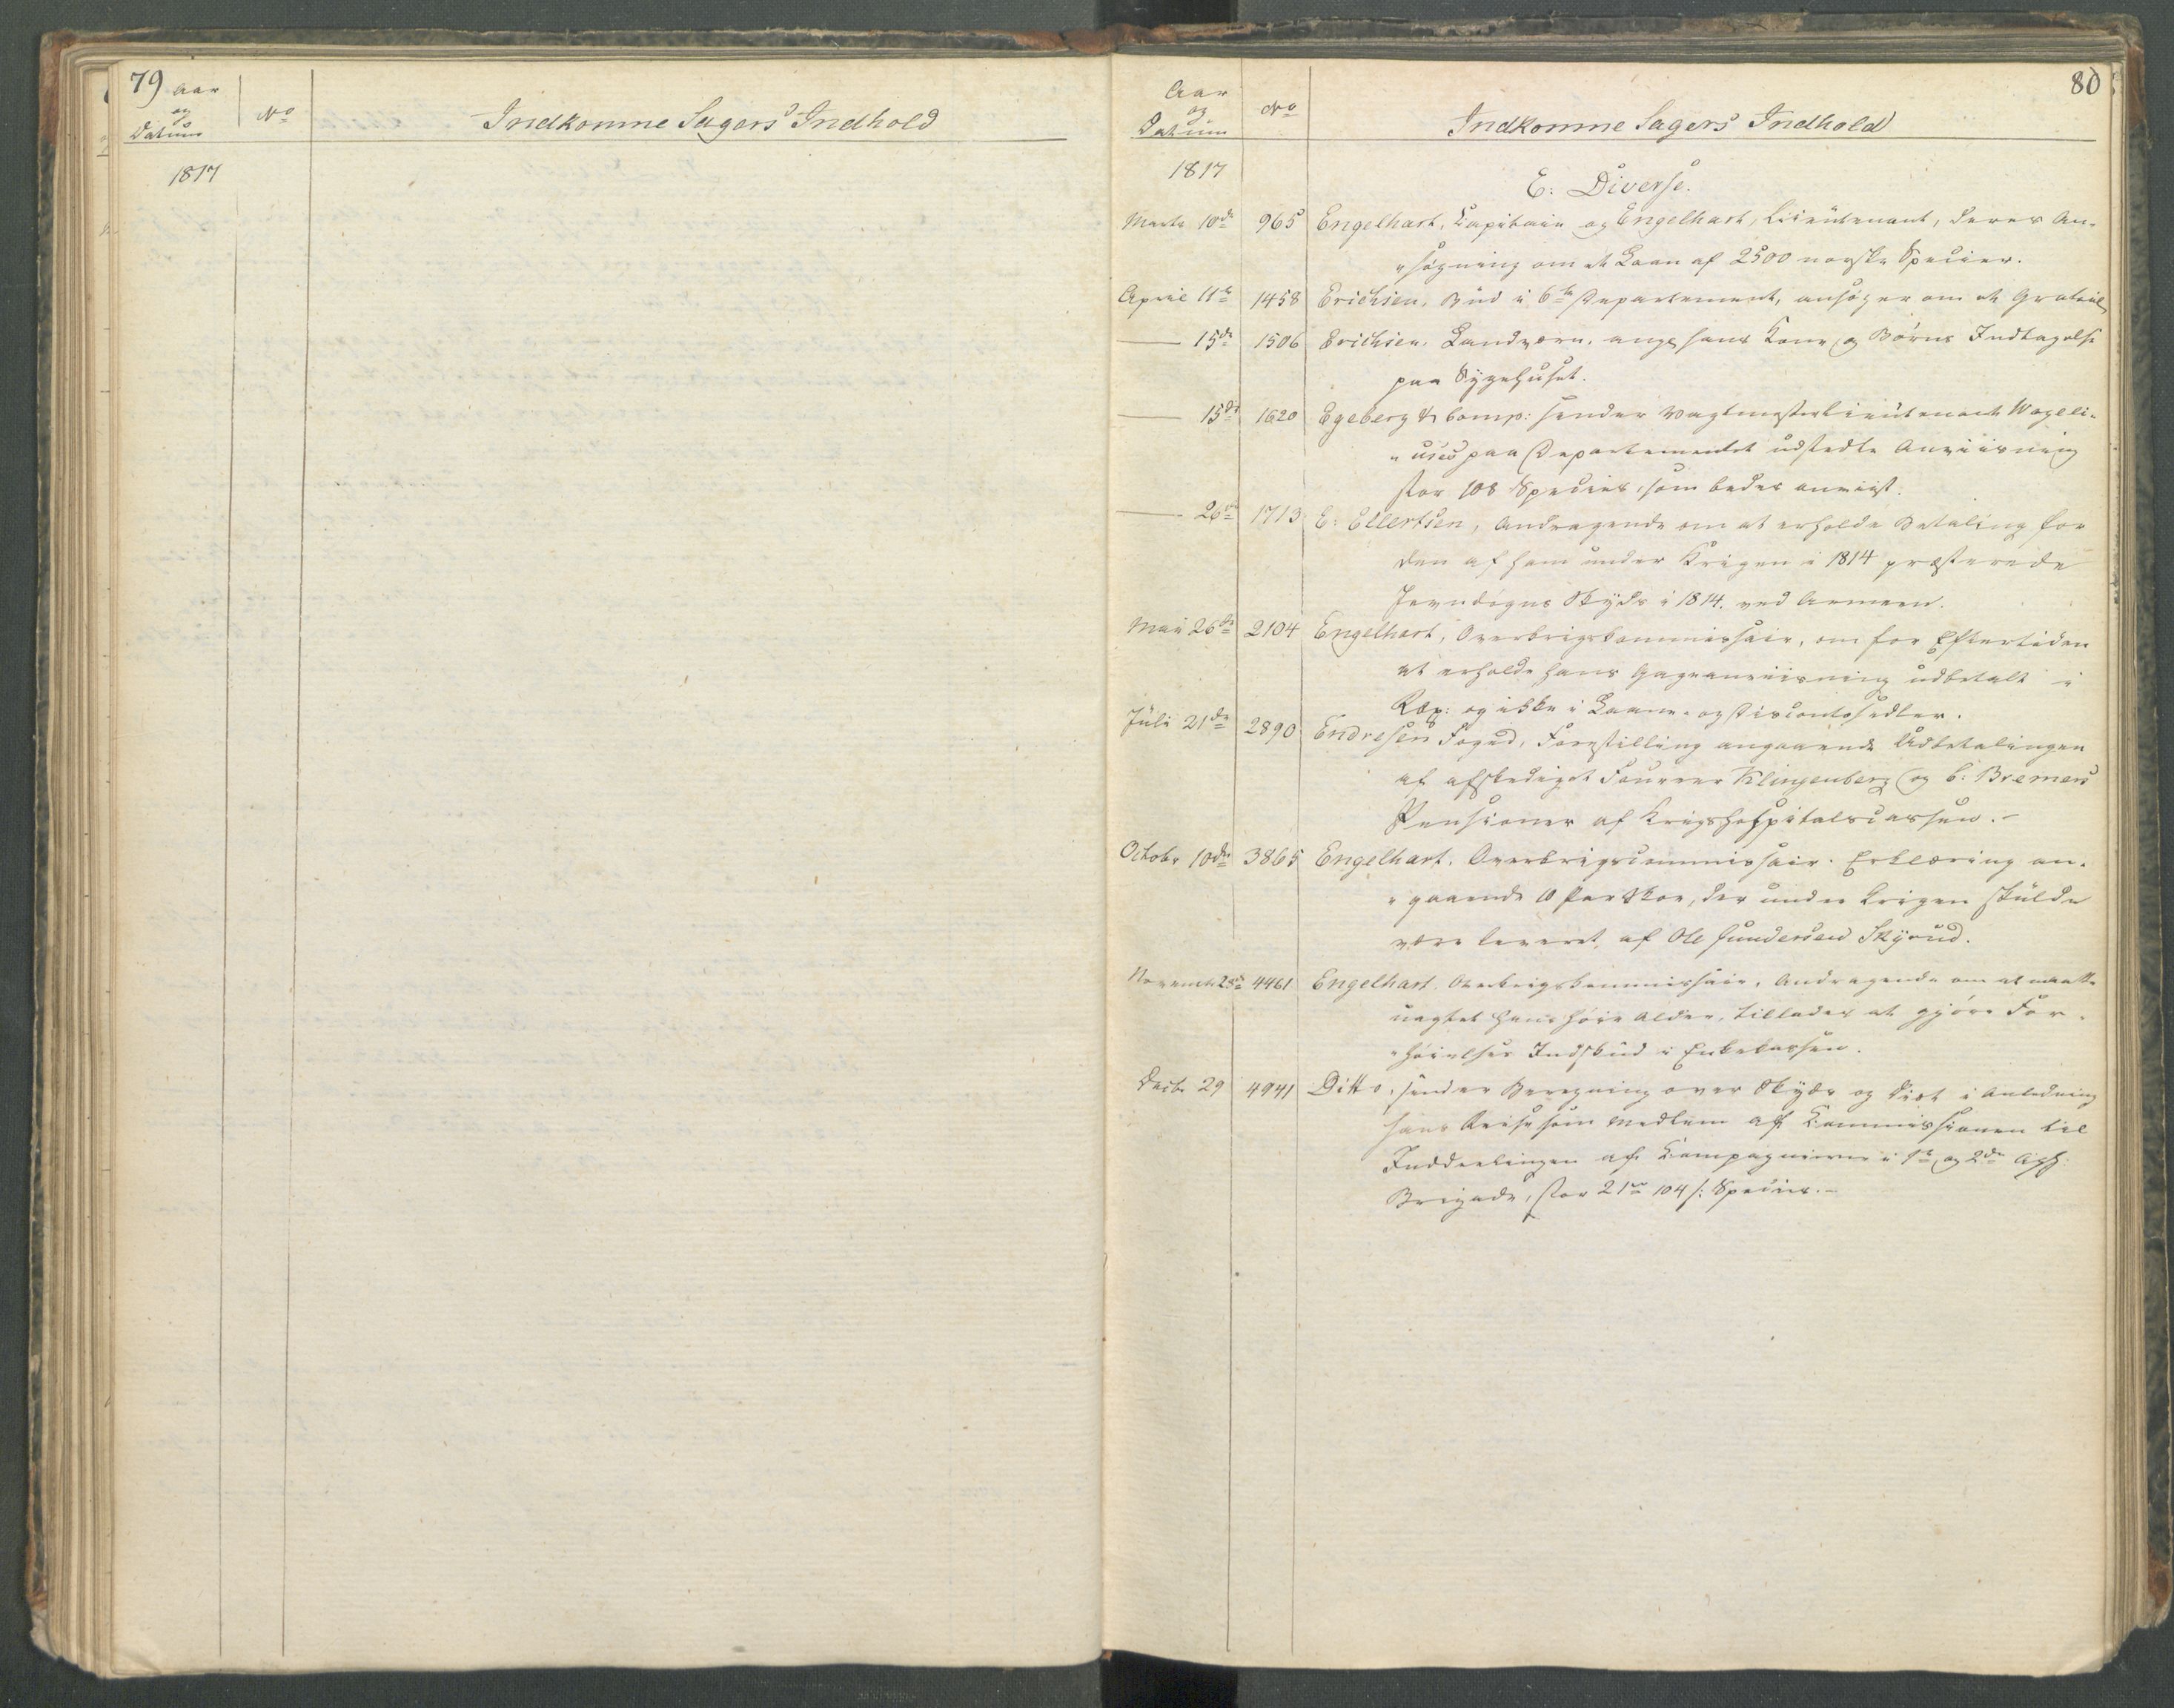 79 Aar
og
Datum
No
Indkomne Sagers Indhold
1817
80
Aar
og
Datum
No
Indkomne Sagers Indhold
1817
E: Diverse.
Marts 10de 965 Engelhart, Capitain og Engelhart, Lieutenant, deres An-
"søgning om et Laan af 2500 norske Specier.
April 11te 1458 Erichsen, Bud i 6te Departement, ansøger om et Gratial
— 15de 1506 Erichsen, Landværn, ang. hans Kone og Børns Indtagelse
paa Sygehuset.
— 15de 1620 Egeberg & Comp: sender Vagtmesterlieutenant Wageli-
"uses paa Departementet udstedte Anviisning
stor 108 Species, som bedes anviist.
— 26de 1713 E: Ellertsen, Andragende om at erholde Betaling for
den af ham under Krigen i 1814 præsterede
Jevndøgns Skyds i 1814. ved Armeen.
Mai 26de 2104 Engelhart, Overkrigskommissair, om for Eftertiden
at erholde hans Gageanviisning udbetalt i
Rbp: og ikke i Laane- og Discontosedler.
Juli 21de 2890 Endresen Foged, Forestilling angaaende Udbetalingen
af afskediget Fourerer Klingenberg og C: Bremers
Pensioner af Krigshospitalscassen.-
Octobr 10de 3865 Engelhart. Overkrigscommissair. Erklæring an-
"gaaende 10 Par Skoe, der under Krigen skulde
være leveret af Ole Gundersen Skyrud.
Novemb 28de 4461 Engelhart. Overkrigskommissair. Andragende om at maatte
uagtet hans høie Alder, tillades at gjøre For-
"høielses Indskud i Enkekassen.
Decbr 29 4941 Ditto, sender Beregning over Skyds og Diæt i Anledning
hans Reise som Medlem af Kommissionen til
Inddeelingen af Kompagnierne i 1te og 2den Aggh:
Brigade, stor 21 104 s: Species.-